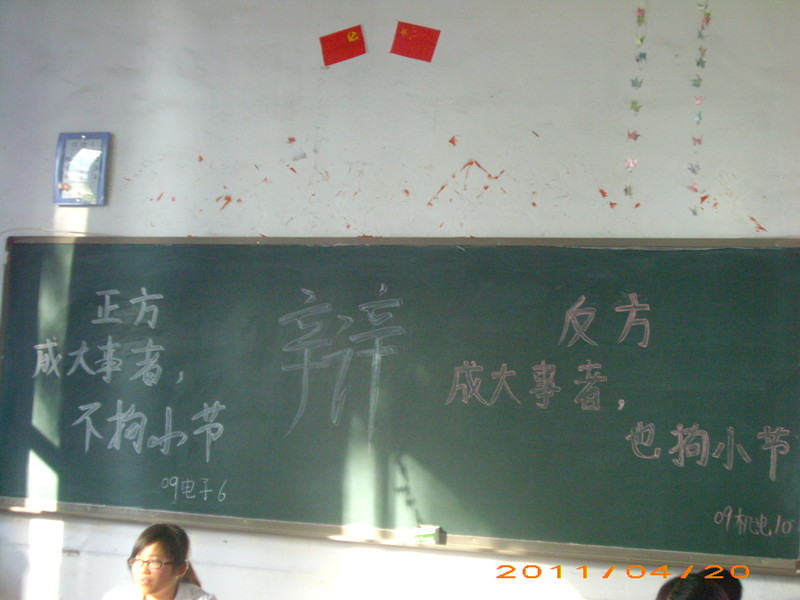 正方
成大事者,
不拘小节
09电子6
辩
反方
成大事者,
也拘小节
09机电10
2011/04/20